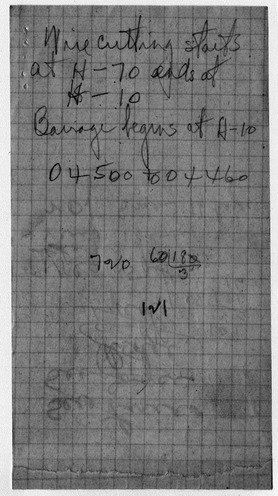 Wire cutting starts
at H-70 ends at
H-10
Barrage begins at H-10
04500 to 04460
720 60|180
3
121